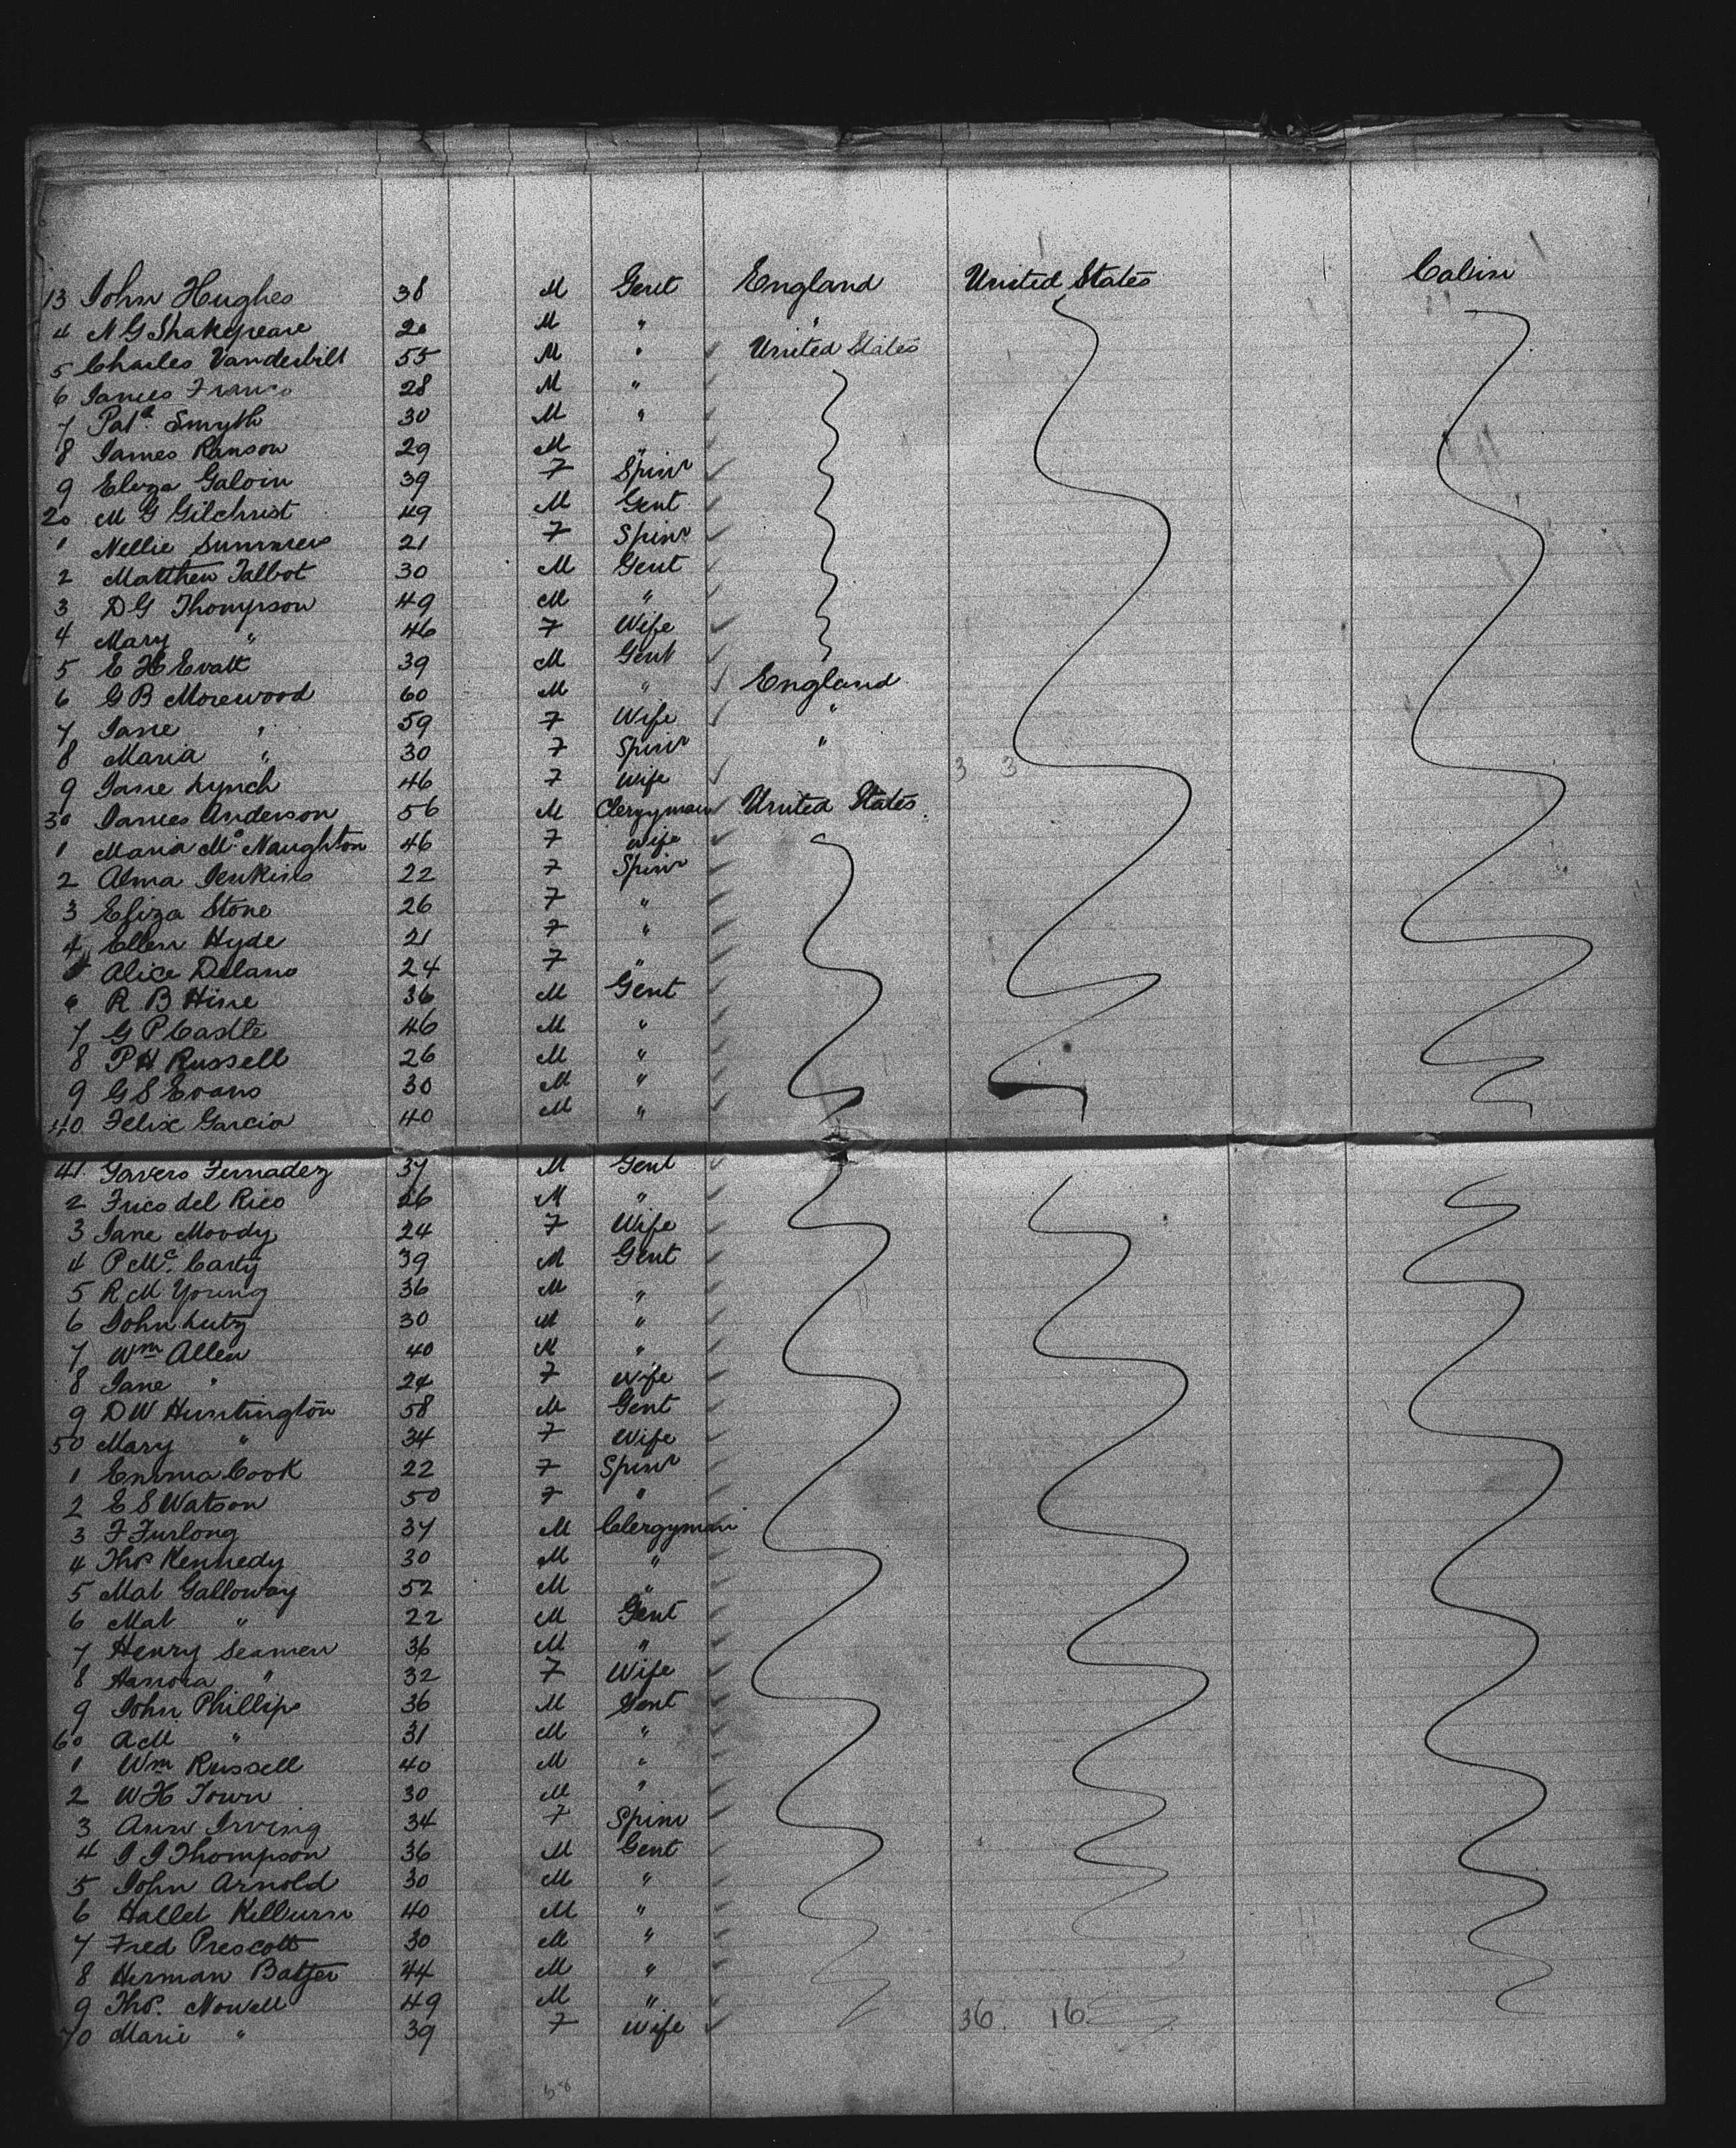 13 John Hughes 38 M Gent England United States Cabin
4 N G Shakspeare 20 M " "
5 Charles Vanderbilt 55 M " United States
6 James Franco 28 M "
7 Pat.k Smyth 30 M "
8 James Ranson 29 M "
9 Eliza Galvin 39 F Spinr
20 M G Gilchrist 49 M Gent
1 Nellie Summers 21 F Spinr
2 Matthew Talbot 30 M Gent
3 D G Thompson 49 M "
4 Mary " 46 F Wife
5 E H Evatt 39 M Gent
6 G B Morewood 60 M " England
7 Jane " 59 F Wife "
8 Maria " 30 F Spinr "
9 Jane Lynch 46 F Wife 3 3
30 James Anderson 56 M Clergyman United States
1 Maria Mc Naughton 46 F Wife
2 Alma Jenkins 22 F Spinr
3 Eliza Stone 26 F "
4 Ellen Hyde 21 F "
5 Alice Delano 24 F "
6 R B Hine 36 M Gent
7 G P Castle 46 M "
8 P H Russell 26 M "
9 G S Evans 30 M "
40 Felix Garcia 40 M "
41 Gavero Fernadez 37 M Gent
2 Frico del Rico 26 M "
3 Jane Moody 24 F Wife
4 P Mc Carty 39 M Gent
5 R M Young 36 M "
6 John Lutz 30 M "
7 Wm Allen 40 M "
8 Jane " 24 F Wife
9 D W Huntington 58 M Gent
50 Mary " 34 F Wife
1 Emma Cook 22 F Spinr
2 E S Watson 50 F "
3 F Furlong 37 M Clergyman
4 Thos Kennedy 30 M "
5 Mat Galloway 52 M "
6 Mat " 22 M Gent
7 Henry Seamen 36 M "
8 Hanora " 32 F Wife
9 John Phillips 36 M Gent
60 A M " 31 M "
1 Wm Russell 40 M "
2 W H Town 30 M "
3 Ann Irving 34 F Spinr
4 J J Thompson 36 M Gent
5 John Arnold 30 M "
6 Hallet Kilburn 40 M "
7 Fred Prescott 30 M "
8 Herman Batjer 44 M "
9 Thos. Nowell 49 M "
70 Marie " 39 F Wife 36. 16